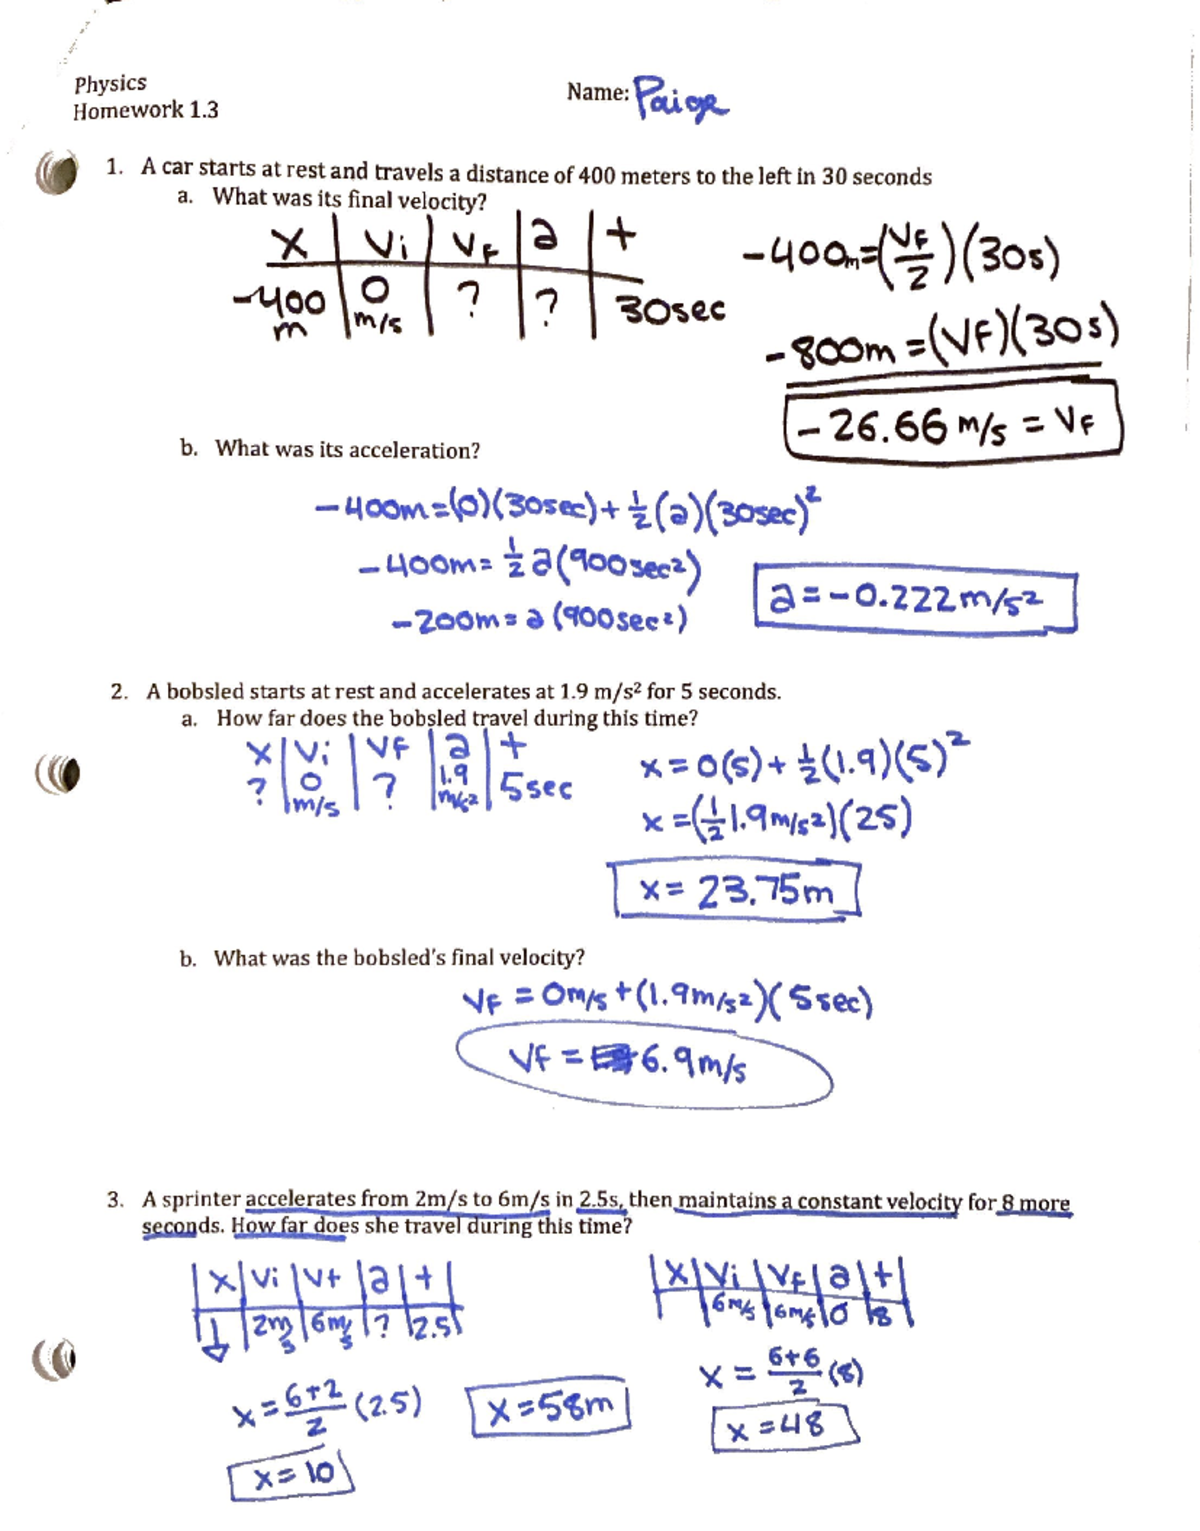 Physics
Homework 1.3
Name: Paige
1. A car starts at rest and travels a distance of 400 meters to the left in 30 seconds
a. What was its final velocity?
x | Vi | VF | a | t
-400 m | 0 m/s | ? | ? | 30sec
-400m=(VF/2)(30s)
-800m=(VF)(30s)
-26.66 m/s = VF
b. What was its acceleration?
-400m=(0)(30sec)+½(a)(30sec)²
-400m=½a(900sec²)
-200m=a(900sec²)
a=-0.222m/s²
2. A bobsled starts at rest and accelerates at 1.9 m/s² for 5 seconds.
a. How far does the bobsled travel during this time?
x | Vi | VF | a | t
? | 0 m/s | ? | 1.9 m/s² | 5sec
x=0(5)+½(1.9)(5)²
x=(½1.9m/s²)(25)
x=23.75m
b. What was the bobsled's final velocity?
VF=0m/s+(1.9m/s²)(5sec)
VF=6.9m/s
3. A sprinter accelerates from 2m/s to 6m/s in 2.5s, then maintains a constant velocity for 8 more
seconds. How far does she travel during this time?
|x|Vi|Vf|a|t|
|2m/s|6m/s|?|2.5|
x=6+2/2(2.5)
x=10
x=58m
|x|Vi|VF|a|t|
|6m/s|6m/s|0|8|
x=6+6/2(8)
x=48